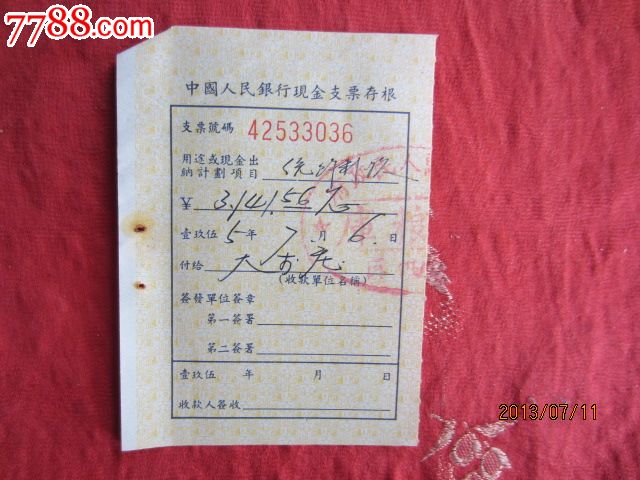 7788.com
中國人民銀行現金支票存根
支票號碼 42533036
用途或現金出
納計劃項目
¥ 3,141.56元
壹玖伍5年7月6日
付给 大
(收款單位名稱)
簽發單位簽章
第一簽署
第二簽署
壹玖伍 年 月 日
收款人簽收
2013/07/11